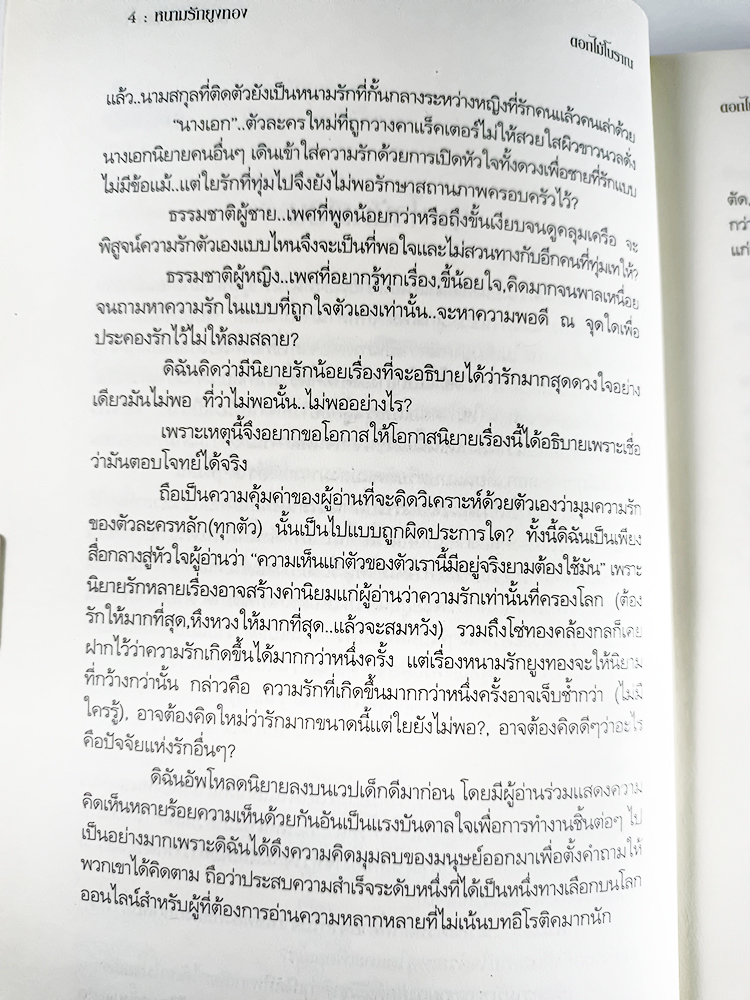 4 : หนามรักยูงทอง
ดอกไม้โบราณ
แล้ว..นามสกุลที่ติดตัวยังเป็นหนามรักที่กั้นกลางระหว่างหญิงที่รักคนแล้วคนเล่าด้วย
“นางเอก”..ตัวละครใหม่ที่ถูกวางคาแร็คเตอร์ไม่ให้สวยใสผิวขาวนวลดั่ง
นางเอกนิยายคนอื่นๆ เดินเข้าใส่ความรักด้วยการเปิดหัวใจทั้งดวงเพื่อชายที่รักแบบ
ไม่มีข้อแม้..แต่ใยรักที่ทุ่มไปจึงยังไม่พอรักษาสถานภาพครอบครัวไว้?
ธรรมชาติผู้ชาย..เพศที่พูดน้อยกว่าหรือถึงขั้นเงียบจนดูคลุมเครือ จะ
พิสูจน์ความรักตัวเองแบบไหนจึงจะเป็นที่พอใจและไม่สวนทางกับอีกคนที่ทุ่มเทให้ว
ธรรมชาติผู้หญิง..เพศที่อยากรู้ทุกเรื่อง,ขี้น้อยใจ,คิดมากจนพาลเหนื่อย
จนถามหาความรักในแบบที่ถูกใจตัวเองเท่านั้น..จะหาความพอดี ณ จุดใดเพื่อ
ประคองรักไว้ไม่ให้ลมสลาย?
ดิฉันคิดว่ามีนิยายรักน้อยเรื่องที่จะอธิบายได้ว่ารักมากสุดดวงใจอย่าง
เดียวมันไม่พอ ที่ว่าไม่พอนั้น..ไม่พออย่างไร?
เพราะเหตุนี้จึงอยากขอโอกาสให้โอกาสนิยายเรื่องนี้ได้อธิบายเพราะเชื่อ
ว่ามันตอบโจทย์ได้จริง
ถือเป็นความคุ้มค่าของผู้อ่านที่จะคิดวิเคราะห์ด้วยตัวเองว่ามุมความรัก
ของตัวละครหลัก(ทุกตัว) นั้นเป็นไปแบบถูกผิดประการใด? ทั้งนี้ดิฉันเป็นเพียง
สื่อกลางสู่หัวใจผู้อ่านว่า “ความเห็นแก่ตัวของตัวเรานี้มีอยู่จริงยามต้องใช้มัน” เพราะ
นิยายรักหลายเรื่องอาจสร้างค่านิยมแก่ผู้อ่านว่าความรักเท่านั้นที่ครองโลก (ต้อง
รักให้มากที่สุด,หึงหวงให้มากที่สุด..แล้วจะสมหวัง) รวมถึงโซ่ทองคล้องกลก็เคย
ฝากไว้ว่าความรักเกิดขึ้นได้มากกว่าหนึ่งครั้ง แต่เรื่องหนามรักยูงทองจะให้นิยาม
ที่กว้างกว่านั้น กล่าวคือ ความรักที่เกิดขึ้นมากกว่าหนึ่งครั้งอาจเจ็บซ้ำกว่า (ไม่มี
ใครรู้), อาจต้องคิดใหม่ว่ารักมากขนาดนี้แต่ใยยังไม่พอ?, อาจต้องคิดดีๆว่าอะไร
คือปัจจัยแห่งรักอื่นๆ?
ดิฉันอัพโหลดนิยายลงบนเวปเด็กดีมาก่อน โดยมีผู้อ่านร่วมแสดงความ
คิดเห็นหลายร้อยความเห็นด้วยกันอันเป็นแรงบันดาลใจเพื่อการทำงานชิ้นต่อๆ ไป
เป็นอย่างมากเพราะดิฉันได้ดึงความคิดมุมลบของมนุษย์ออกมาเพื่อตั้งคำถามให้
พวกเขาได้คิดตาม ถือว่าประสบความสำเร็จระดับหนึ่งที่ได้เป็นหนึ่งทางเลือกบนโลก
ออนไลน์สำหรับผู้ที่ต้องการอ่านความหลากหลายที่ไม่เน้นบทอิโรติคมากนัก
ตัด.
กว่า
แก่